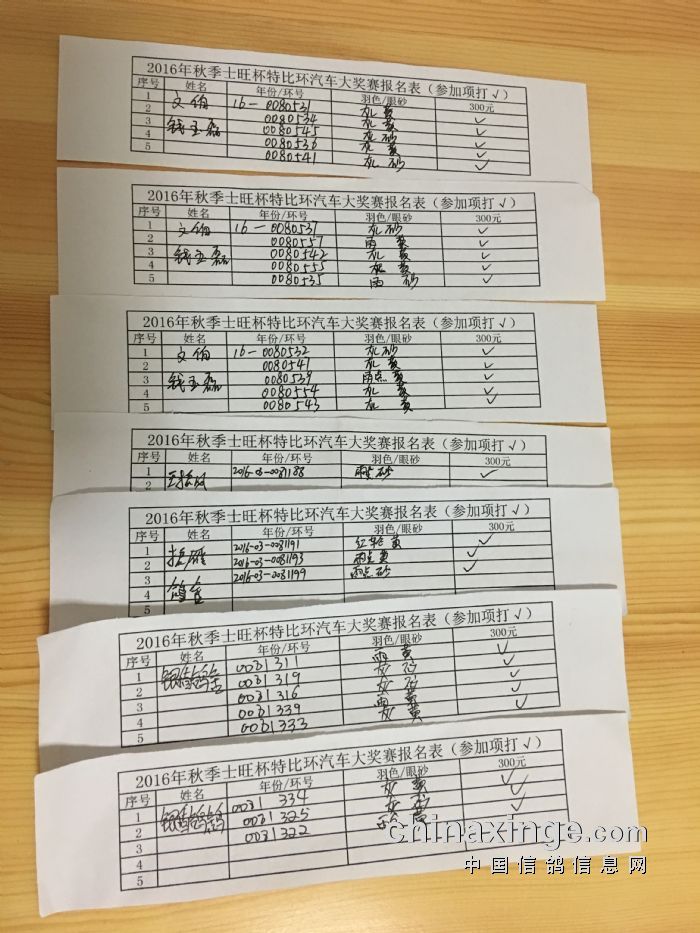 2016年秋季士旺杯特比环汽车大奖赛报名表（参加项打√）
序号 姓名 年份/环号 羽色/眼砂 300元
1 文伯 16-0080531 灰 黄 √
2 0080534 灰 黄 √
3 钱玉磊 0080545 灰 砂 √
4 0080536 灰 黄 √
5 0080541 灰 砂 √
2016年秋季士旺杯特比环汽车大奖赛报名表（参加项打√）
序号 姓名 年份/环号 羽色/眼砂 300元
1 文伯 16-0080537 灰 砂 √
2 0080557 雨 黄 √
3 钱玉磊 0080542 灰 黄 √
4 0080555 黄 √
5 0080535 雨 砂 √
2016年秋季士旺杯特比环汽车大奖赛报名表（参加项打√）
序号 姓名 年份/环号 羽色/眼砂 300元
1 文伯 16-0080532 灰 砂 √
2 0080541 灰 黄 √
3 钱玉磊 0080539 雨点 黄 √
4 0080554 灰 黄 √
5 0080543 灰 黄 √
2016年秋季士旺杯特比环汽车大奖赛报名表（参加项打√）
序号 姓名 年份/环号 羽色/眼砂 300元
1 2016-03-0031188 雨点 砂 √
2
2016年秋季士旺杯特比环汽车大奖赛报名表（参加项打√）
序号 姓名 年份/环号 羽色/眼砂 300元
1 振雁 2016-03-0031191 红 黄 √
2 2016-03-0031193 雨点 黄 √
3 鸽舍 2016-03-0031199 雨点 砂 √
4
5
2016年秋季士旺杯特比环汽车大奖赛报名表（参加项打√）
序号 姓名 年份/环号 羽色/眼砂 300元
1 0031311 雨 黄 √
2 0031319 灰 砂 √
3 0031316 灰 砂 √
4 0031339 雨 黄 √
5 0031333 灰 黄 √
2016年秋季士旺杯特比环汽车大奖赛报名表（参加项打√）
序号 姓名 年份/环号 羽色/眼砂 300元
1 0031334 灰 黄 √
2 0031325 灰 √
3 0031322 黄
4
5
chinaxinge.com
中国信鸽信息网